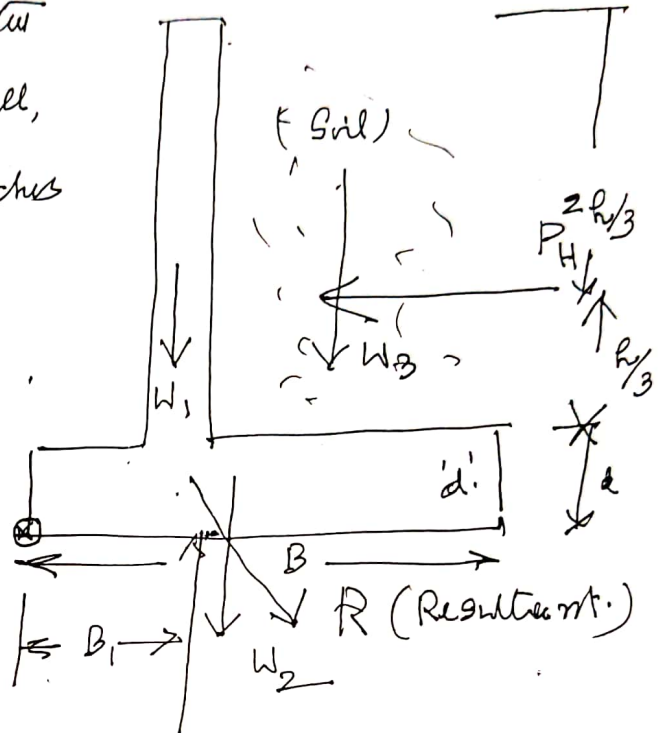 ell,
( Soil)
2h/3
P_H
W3
h/3
W1
'd'
d
B
R (Resultant.)
B1
W2